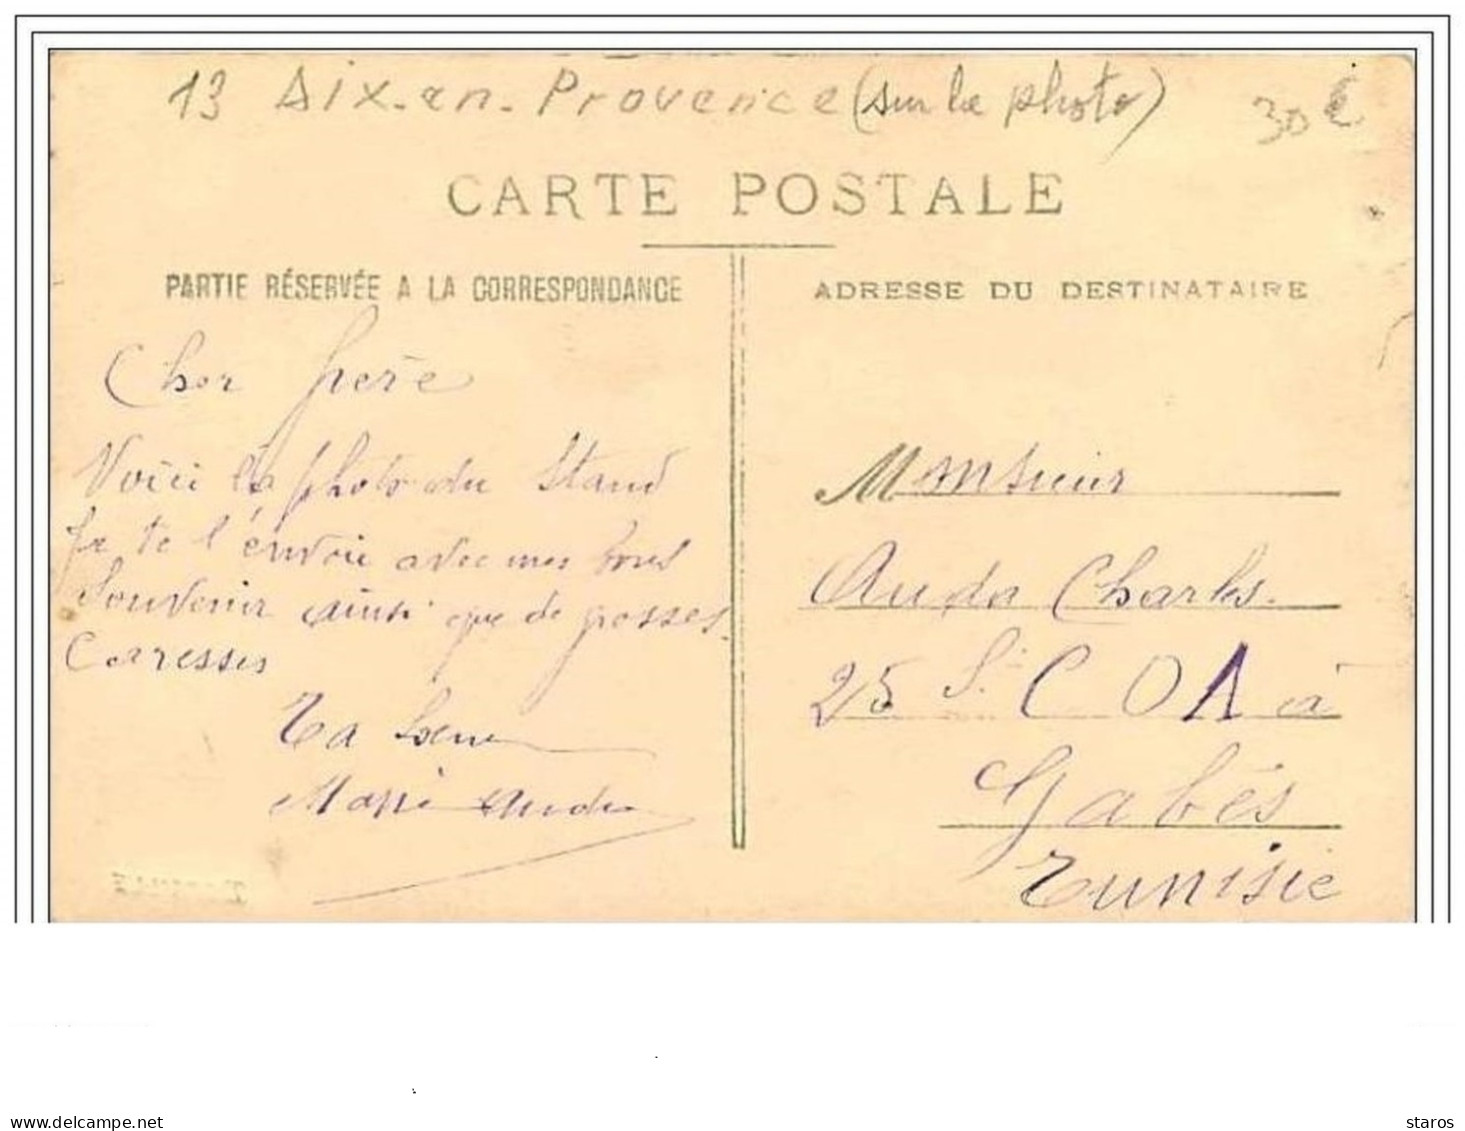 13 Aix-en-Provence (sur la photo) 30€
CARTE POSTALE
PARTIE RÉSERVÉE A LA CORRESPONDANCE
ADRESSE DU DESTINATAIRE
Cher frere
Voici la photo du Stand
Je te l'envoie avec mes bons
Souvenir ainsi que de grosses
Caresses
Ta Soeur
Marie Auda
Monsieur
Auda Charles
25 S. C O A à
Gabés
Tunisie
www.delcampe.net
staros